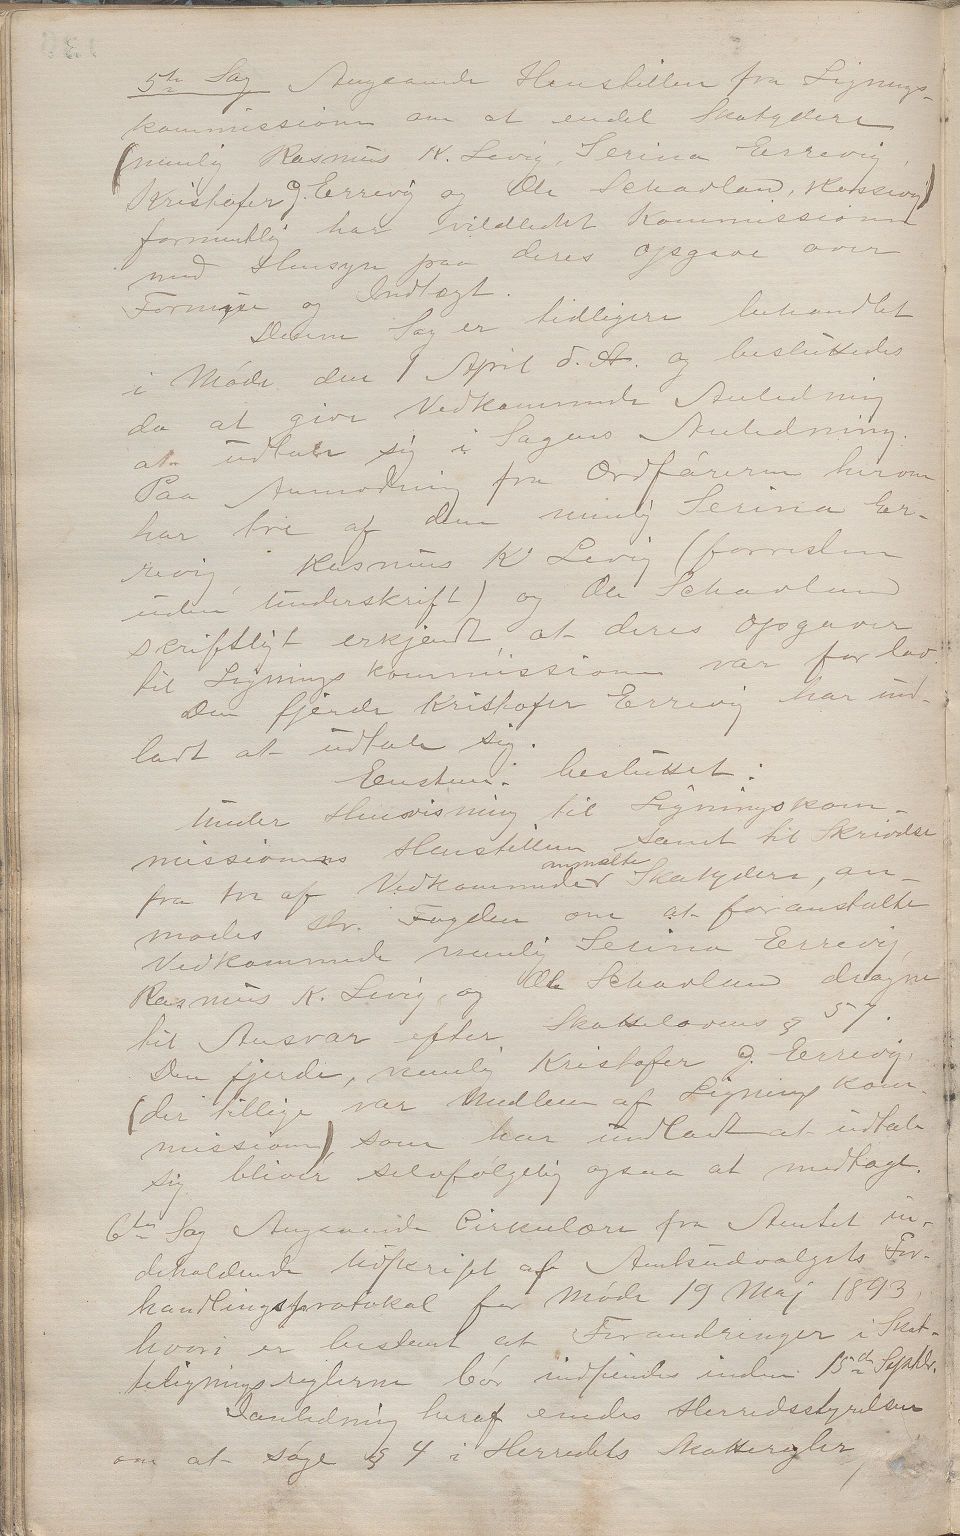 5te Sag Angaaende Henstillen fra Lignings-
kommissionen om at endel Skatydere
(nemlig Rasmus K. Løvig, Serina Errevig,
Kristofer J. Errevig og Ole Schavland,
formentlig har vildledet Kommissionen
med Hensyn paa deres Opgave over
Formue og Indtægt.
Denne Sag er tidligere behandlet
i Møde den 1 April d. A. og besluttedes
da at give Vedkommende Anledning
at udtale sig i Sagens Anledning.
Paa Anmodning fra Ordføreren herom
har tre af dem nemlig Serina Er-
revig Rasmus K Løvig (forresten
uden Underskrift) og Ole Schavland
skriftligt erkjendt at deres Opgaver
til Ligningskommissionen var for lav.
Den fjerde Kristofer Errevig har und-
ladt at udtale sig.
Enstem. besluttet:
Under Henvisning til Ligningskom-
missionens Henstillen samt til Skrivelse
fra tre af Vedkommende anmeldte Skatydere, an-
modes Hr. Fogden om at foranstalte
Vedkommende nemlig Serina Errevig,
Rasmus K. Løvig, og Ole Schavland dragne
til Ansvar efter Skattelovens § 57.
Den fjerde, nemlig Kristofer J. Errevig,
(der tillige var Medlem af Lignings kom-
missionen), som har undladt at udtale
sig bliver selvfølgelig ogsaa at medtage.
6te Sag Angaaende Cirkulære fra Amtet in-
deholdende Udskrift af Amtsudvalgets For-
handlingsprotokol for Møde 19 Maj 1893,
hvori er bestemt at Forandringer i Skat-
teligningsreglerne bør indsendes inden 15de Septbr.
I anledning heraf enedes Herredsstyrelsen
om at søge § 4 i Herredets Skatteregler,